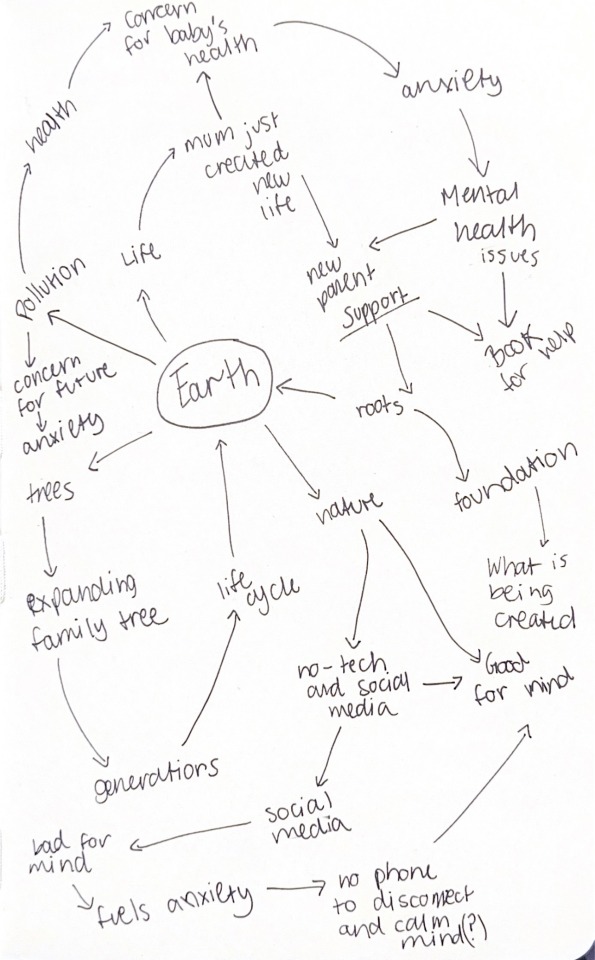 concern
for baby's
health
anxiety
health
mum just
created
new
life
Mental
health
issues
Life
new
parent
support
Pollution
Book
for help
concern
for future
anxiety
Earth
roots
trees
foundation
nature
What is
being
created
expanding
family tree
life
cycle
no-tech
and social
media
Good
for mind
generations
social
media
bad for
mind
fuels anxiety
no phone
to disconnect
and calm
mind(?)